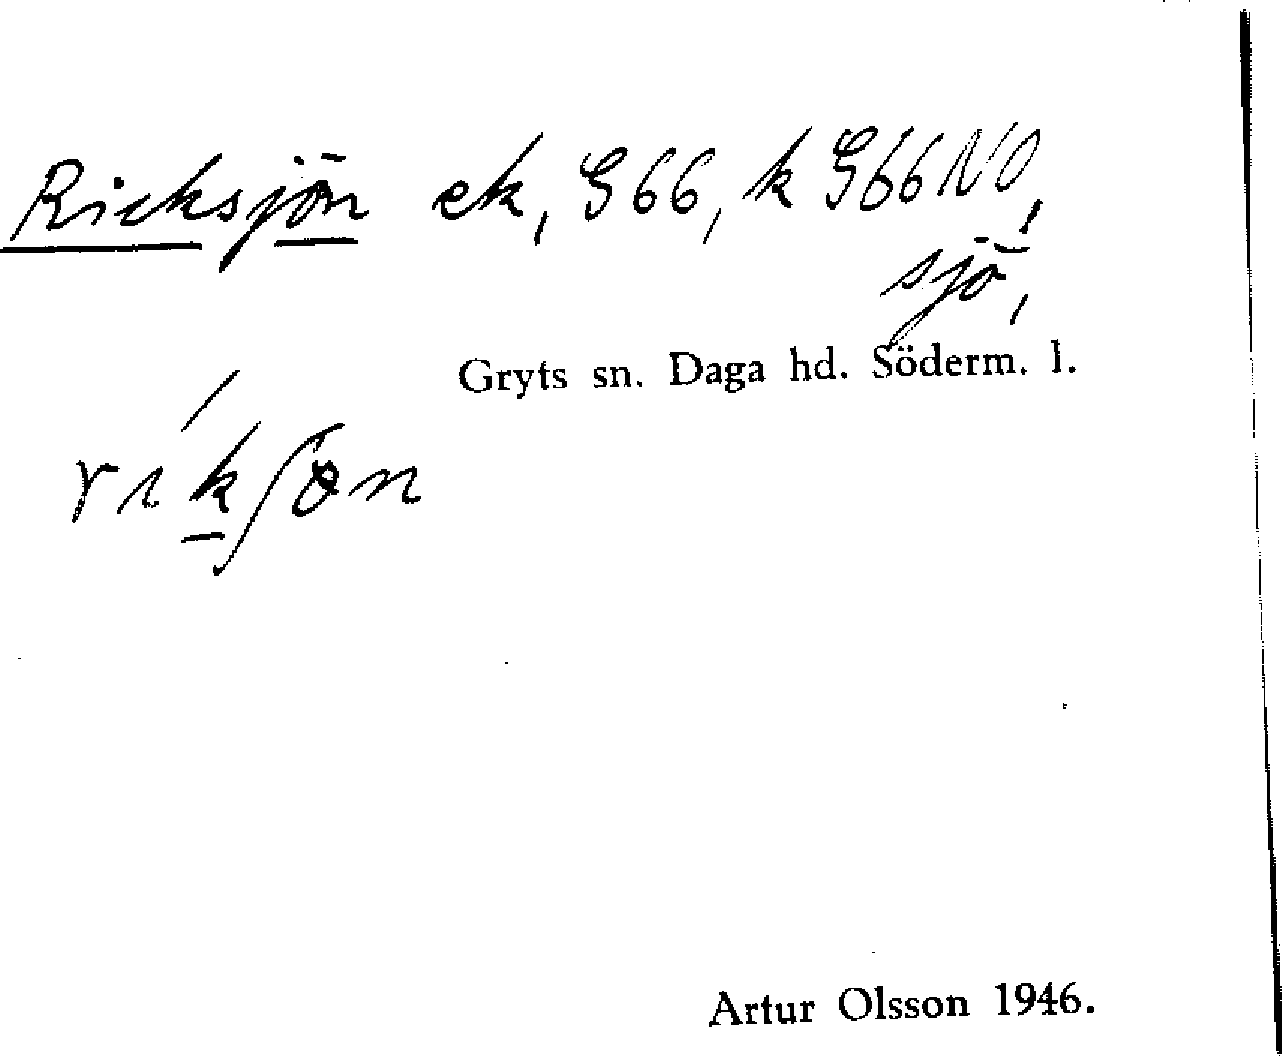 Ricksjön ek, G66, k G66NO,
sjö,
Gryts sn. Daga hd. Söderm. l.
Artur Olsson 1946.